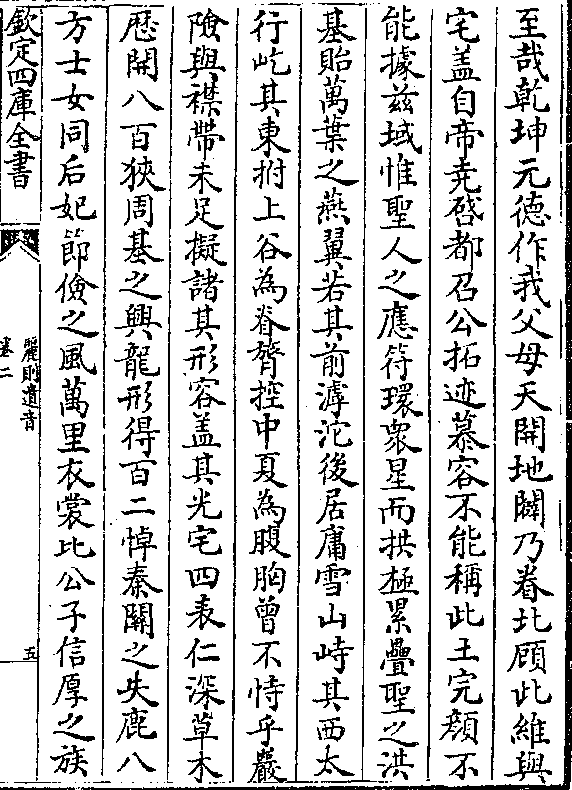 至哉乾坤元德作我父母天開地闢乃眷北顧此維與
宅盖自帝堯啓都召公拓迹慕容不能稱此王完顔不
能據兹域惟聖人之應符環衆星而拱極累疊聖之洪
基貽萬葉之燕翼若其前滹沱後居庸雪山峙其西太
行屹其東拊上谷為脊膂控中夏為腹胸曾不恃乎巖
險與襟帶未足擬諸其形容盖其光宅四表仁深草木
歴開八百狹周基之興龍形得百二悼秦關之失鹿八
方士女同后妃節儉之風萬里衣裳比公子信厚之族
欽定四庫全書
麗則遺音
卷二
五